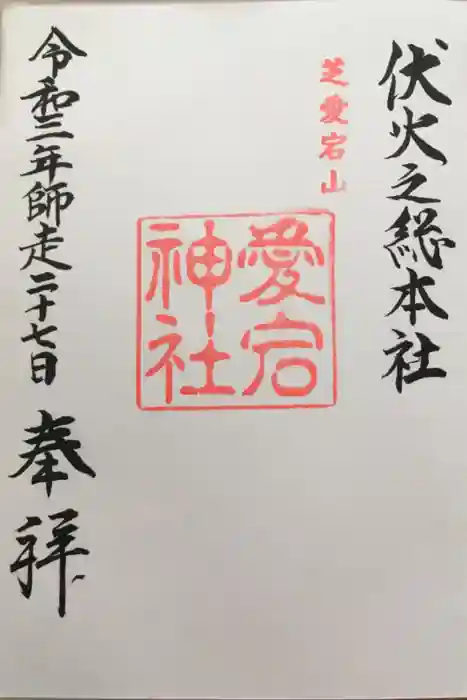 伏火之総本社
芝愛宕山
愛宕
神社
令和三年師走二十七日
奉拝